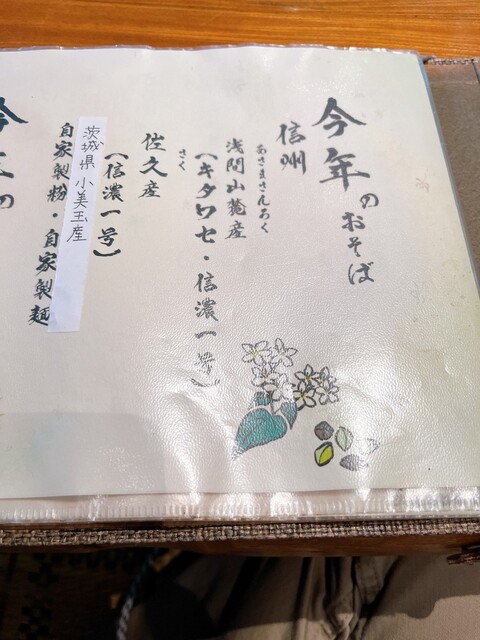 今年のおそば
信州
あさまさんろく
浅間山麓産
(キタワセ・信濃一号)
さく
佐久産
(信濃一号)
茨城県 小美玉産
自家製粉・自家製麺